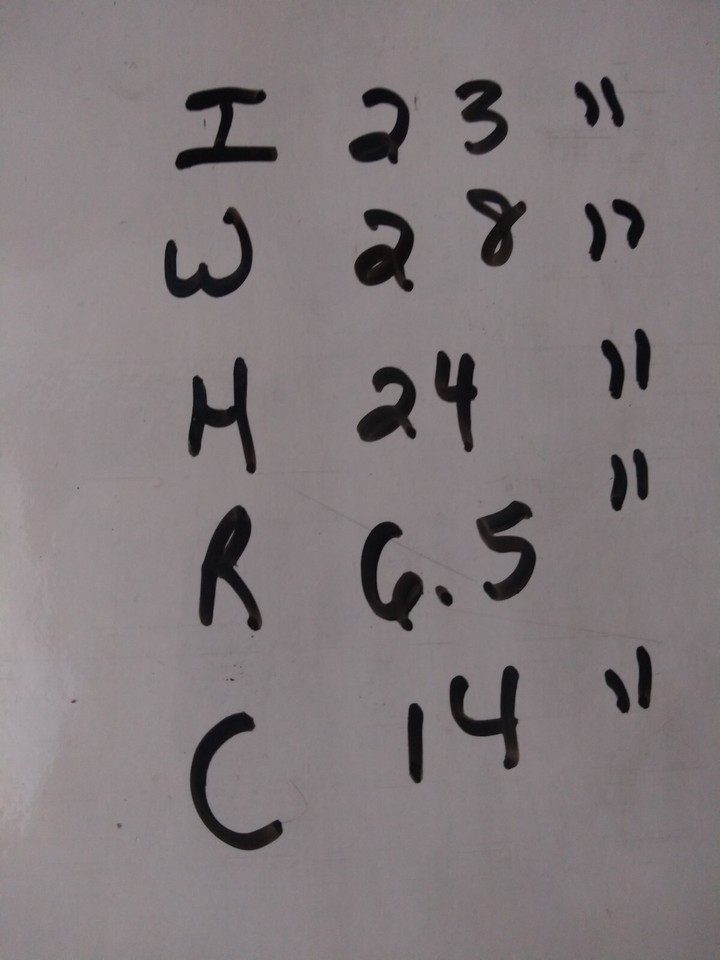 I 23"
W 28"
H 24"
R 6.5"
C 14"